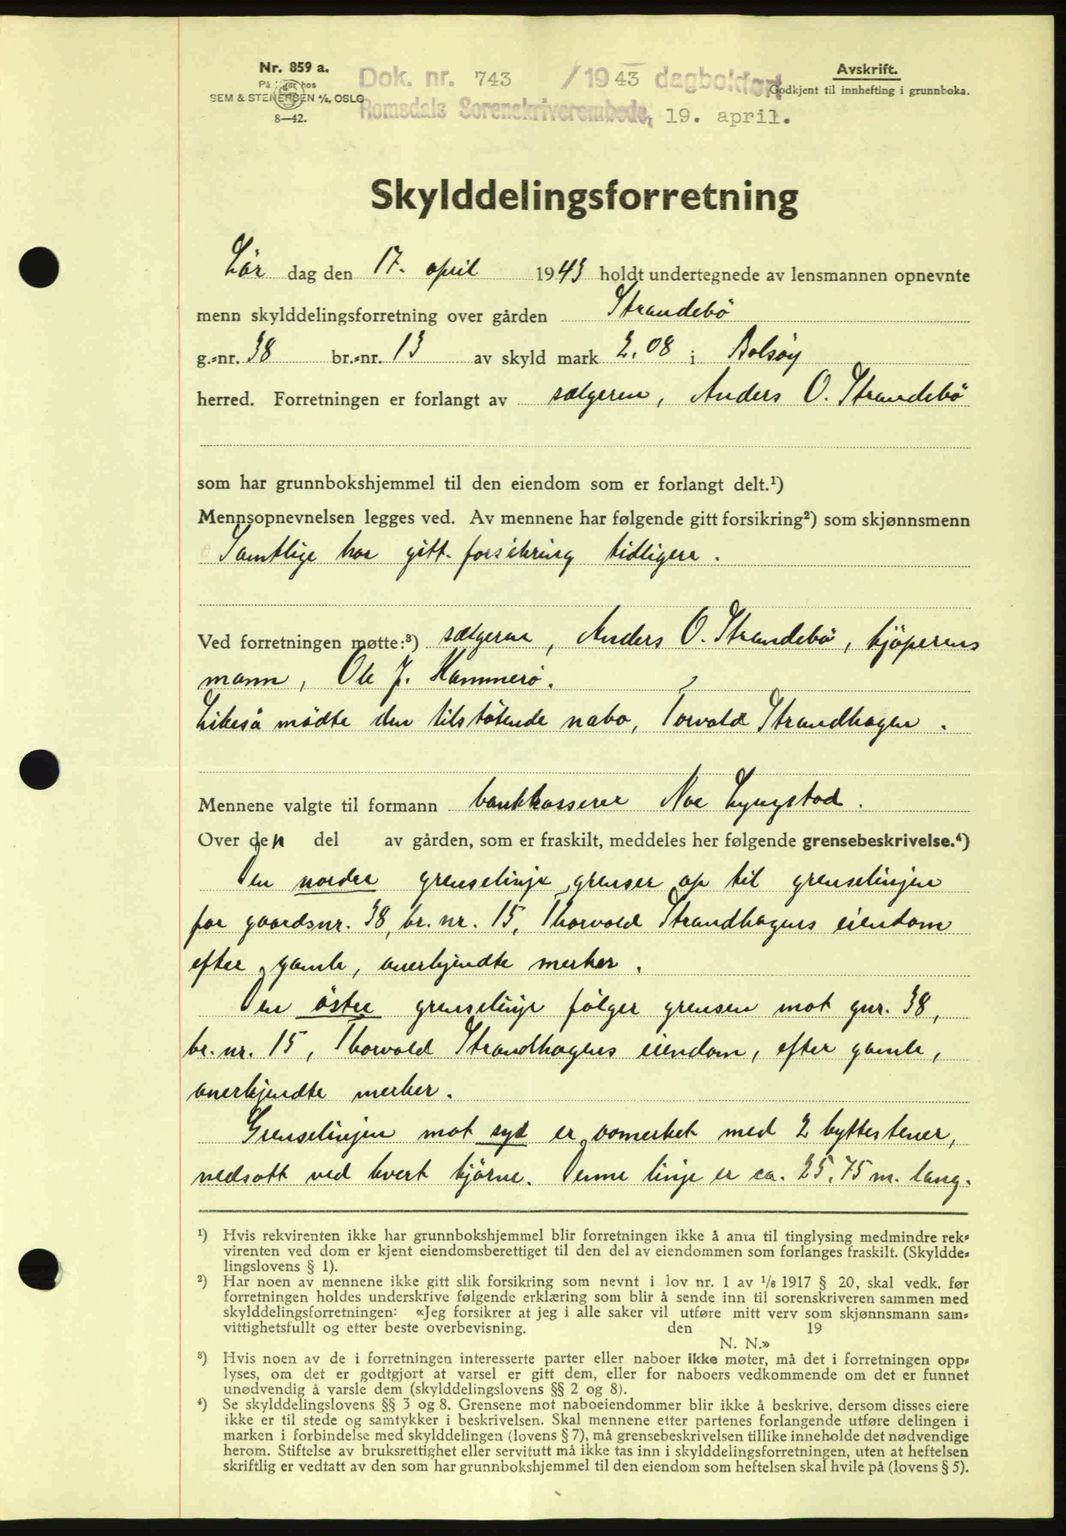 Nr. 859 a.
På lager hos
SEM & STENERSEN A/S, OSLO
8—42.
Dok. nr. 743 /1943 dagbokført
Romsdals Sorenskriverembede, 19. april.
Avskrift.
Godkjent til innhefting i grunnboka.
Skylddelingsforretning
Lör dag den 17. april 1943 holdt undertegnede av lensmannen opnevnte
menn skylddelingsforretning over gården Strandebö
g.-nr. 38 br.-nr. 13 av skyld mark 2,08 i Bolsöy
herred. Forretningen er forlangt av sælgeren, Anders O. Strandebö
som har grunnbokshjemmel til den eiendom som er forlangt delt.¹)
Mennsopnevnelsen legges ved. Av mennene har følgende gitt forsikring²) som skjønnsmenn
Samtlige har gitt forsikring tidligere.
Ved forretningen møtte:³) sælgeren, Anders O. Strandebö, kjöperens
mann, Ole J. Hammerö.
Likeså mödte den tilstötende nabo, Torvald Strandhagen.
Mennene valgte til formann bankkasserer Noe Lyngstad.
Over den del av gården, som er fraskilt, meddeles her følgende grensebeskrivelse.⁴)
Den nordre grenselinje grenser op til grenselinjen
for gaardsnr. 38, br. nr. 15, Thorvald Strandhagens eiendom
efter gamle, anerkjendte merker.
Den östre grenselinje fölger grensen mot gnr. 38,
br. nr. 15, Thorvald Strandhagens eiendom, efter gamle,
anerkjendte merker.
Grenselinjen mot syd er opmerket med 2 byttestener,
nedsatt ved hvert hjörne. Denne linje er ca. 25,75 m. lang.
¹) Hvis rekvirenten ikke har grunnbokshjemmel blir forretningen ikke å anta til tinglysing medmindre rek-
virenten ved dom er kjent eiendomsberettiget til den del av eiendommen som forlanges fraskilt. (Skyldde-
lingslovens § 1).
²) Har noen av mennene ikke gitt slik forsikring som nevnt i lov nr. 1 av ¹/₆ 1917 § 20, skal vedk. før
forretningen holdes underskrive følgende erklæring som blir å sende inn til sorenskriveren sammen med
skylddelingsforretningen: «Jeg forsikrer at jeg i alle saker vil utføre mitt verv som skjønnsmann sam-
vittighetsfullt og etter beste overbevisning. den 19
N. N.»
³) Hvis noen av de i forretningen interesserte parter eller naboer ikke møter, må det i forretningen opp-
lyses, om det er godtgjort at varsel er gitt dem, eller for naboers vedkommende om det er funnet
unødvendig å varsle dem (skylddelingslovens §§ 2 og 8).
⁴) Se skylddelingslovens §§ 3 og 8. Grensene mot naboeiendommer blir ikke å beskrive, dersom disses eiere
ikke er til stede og samtykker i beskrivelsen. Skal mennene etter partenes forlangende utføre delingen i
marken i forbindelse med skylddelingen (lovens § 7), må grensebeskrivelsen tillike inneholde det nødvendige
herom. Stiftelse av bruksrettighet eller servitutt må ikke tas inn i skylddelingsforretningen, uten at heftelsen
skriftlig er vedtatt av den som har grunnbokshjemmel til den eiendom som heftelsen skal hvile på (lovens § 5).